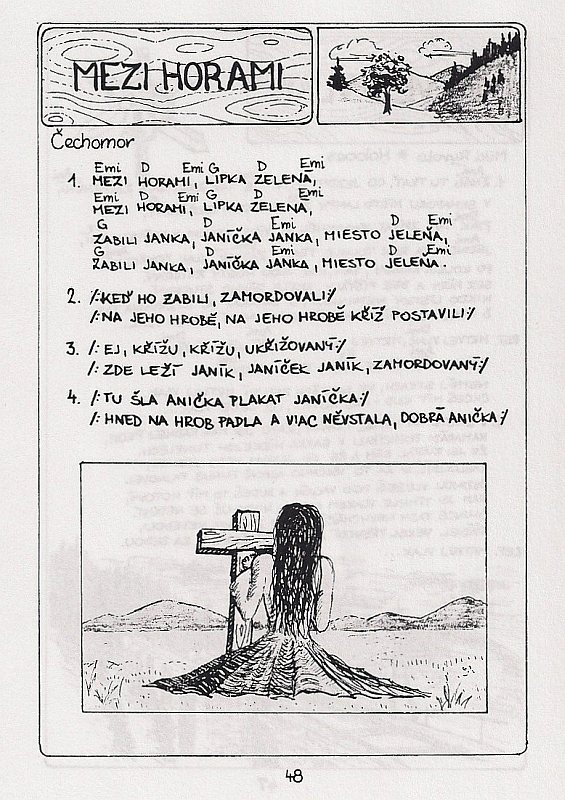 MEZI HORAMI
Čechomor
Emi D Emi G D Emi
1. MEZI HORAMI, LIPKA ZELENÁ,
Emi D Emi G D Emi
MEZI HORAMI, LIPKA ZELENÁ,
G D Emi D Emi
ZABILI JANKA, JANÍČKA JANKA, MIESTO JELEŇA,
G D Emi D Emi
ZABILI JANKA, JANÍČKA JANKA, MIESTO JELEŇA.
2. /:KEĎ HO ZABILI, ZAMORDOVALI:/
/:NA JEHO HROBĚ, NA JEHO HROBĚ KŘÍŽ POSTAVILI:/
3. /: EJ, KŘÍŽU, KŘÍŽU, UKŘIŽOVANÝ:/
/: ZDE LEŽÍ JANÍK, JANÍČEK JANÍK, ZAMORDOVANÝ:/
4. /: TU ŠLA ANIČKA PLAKAT JANÍČKA:/
/: HNED NA HROB PADLA A VIAC NĚVSTALA, DOBRÁ ANIČKA:/
48